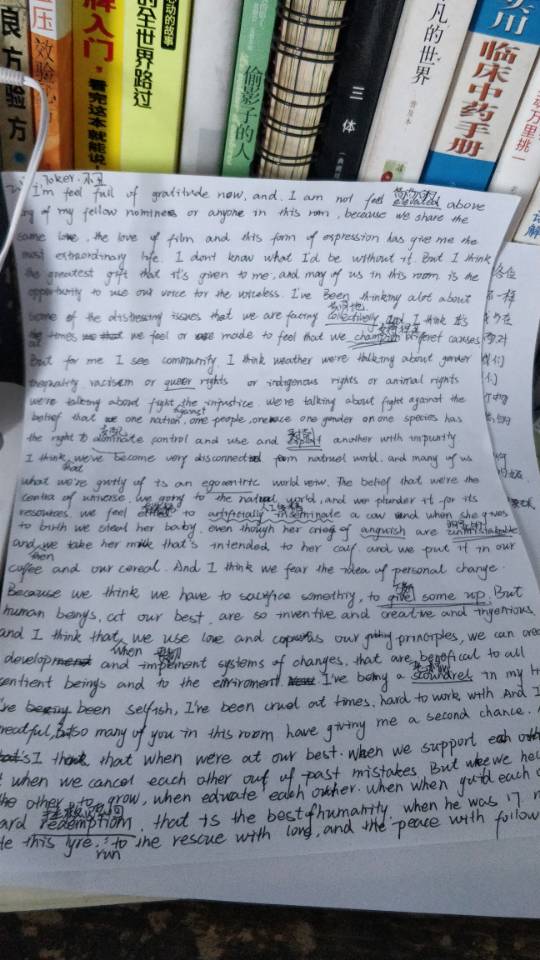 良方验方
压
效验
牌入门
看完这本就能说
心动的故事
的全世界路过
偷影子的人
三体
凡的世界
实用
临床中药手册
万里挑一
Joker. 小丑
I'm feel full of gratitude now, and, I am not feel elevated above
any of my fellow nominees or anyone in this room, because we share the
same love, the love of film and this form of expression has give me the
most extraordinary life. I don't know what I'd be without it. But I think
the greatest gift that it's given to me, and many of us in this room is the
opportunity to use our voice for the voiceless. I've Been thinking alot about
some of the distressing issues that we are facing collectively, and I think it's
at times we feel or made to feel that we champion different causes
But for me I see community. I think weather we're talking about gender
inequality racism or queer rights or indigenous rights or animal rights
we're talking about fight the injustice. we're talking about fight against the
belief that one nation, one people, one race one gender or one species has
the right to dominate control and use and another with impurity
I think, we've become very disconnected from natruel world. and many of us
that
what we're guilty of is an egocentric world view. The belief that we're the
centra of universe. we going to the natural world, and we plunder it for its
resources. we feel to artificially inseminate a cow and when she gives
人工
to birth we steal her baby. even though her cries of anguish are unmistakable
and, we take her milk that's intended to her calf. and we put it in our
then
coffee and our cereal. And I think we fear the idea of personal change.
Because we think we have to sacrifice something, to give some up. But
human beings, at our best. are so inventive and creative and ingenious
and I think that, we use love and our guiding principles, we can crea
when
develop and impment systems of changes, that are benefical to all
sentient beings and to the enviroment. I've being a scoundrel in my
I've been selfish, I've been cruel at times, hard to work, with And I
greatful, so many of you in this room have giving me a second chance.
that's I think, that when were at our best. when we support each oth
when we cancel each other out of past mistakes. But we he
the other to grow, when educate each other. when when guid each o
拯救
ard redemption, that is the best of humanity. when he was 17
te this lyre. to the rescue with long, and the peace with follow
run